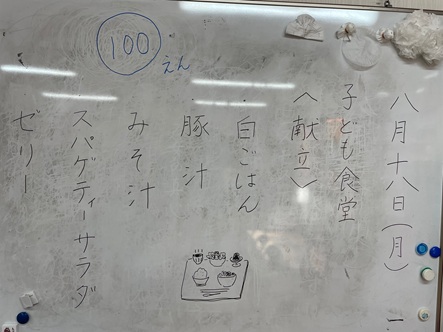 八月十八日(月)
子ども食堂
〈献立〉
・白ごはん
・豚汁
みそ汁
スパゲティーサラダ
ゼリー
100
えん